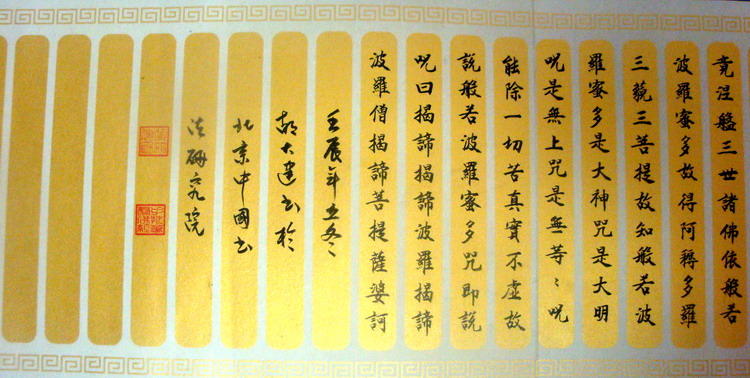 竟涅槃三世諸佛依般若
波羅蜜多故得阿耨多羅
三藐三菩提故知般若波
羅蜜多是大神咒是大明
咒是無上咒是無等〻咒
能除一切苦真實不虛故
說般若波羅蜜多咒即說
咒曰揭諦揭諦波羅揭諦
波羅僧揭諦菩提薩婆訶
壬辰年立冬
胡大建书於
北京中國书
法研究院